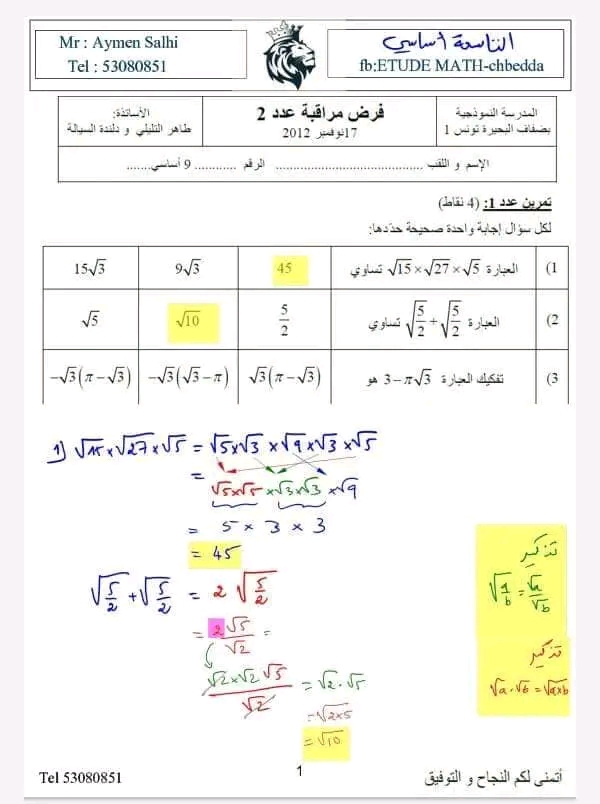 Mr : Aymen Salhi
Tel : 53080851
التاسعة أساسي
fb:ETUDE MATH-chbedda
المدرسة النموذجية
بضفاف البحيرة تونس 1
فرض مراقبة عدد 2
17نوفمبر 2012
الأساتذة:
طاهر التليلي و دلندة السيالة
الإسم و اللقب ........................................... الرقم ............ 9 أساسي.......
تمرين عدد 1: (4 نقاط)
لكل سؤال إجابة واحدة صحيحة حدّدها:
(1 العبارة √15×√27×√5 تساوي 45 9√3 15√3
(2 العبارة √(5/2)+√(5/2) تساوي 5/2 √10 √5
(3 تفكيك العبارة 3−π√3 هو √3(π−√3) −√3(√3−π) −√3(π−√3)
1) √15 × √27 × √5 = √5×√3 ×√9 ×√3 ×√5
= √5×√5 ×√3×√3 ×√9
= 5 × 3 × 3
= 45
√(5/2) + √(5/2) = 2 √(5/2)
= 2√5/√2 =
√2×√2 √5/√2 = √2 · √5
= √2×5
= √10
تذكير
√(a/b) = √a/√b
تذكير
√a · √b = √a×b
Tel 53080851
1
أتمنى لكم النجاح و التوفيق